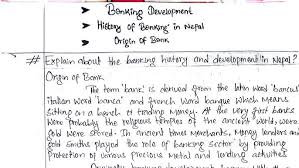 Banking Development
History of Banking in Nepal
Origin of Bank
# Explain about the banking history and development in Nepal?
Origin of Bank
The term 'bank' is derived from the latin word 'bancus'
Italian word banca' and french word banque which means
sitting on a bench or lending money. At the very first banks
were probably the religious temples of the ancient world, were
gold were stored. In ancient times Merchants, Money lenders and
gold smiths played the role of banking sector by providing
protection of various precious metal and lending activities